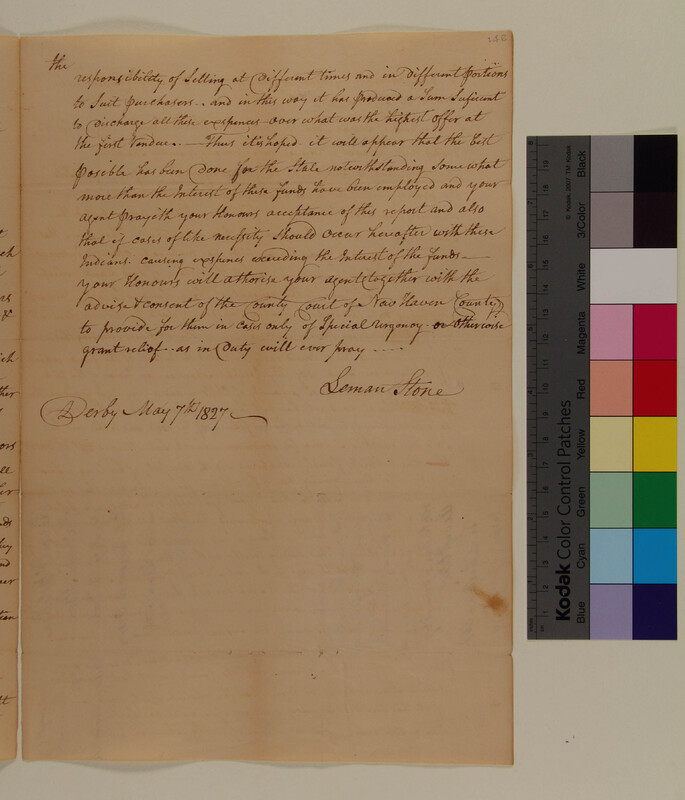 the
responsibility of Selling at Different times and in Different Portions
to Suit purchasers.. and in this way it has Produced a Sum Suficent
to discharge all these expences over what was the highest offer at
the first Vendue. — Thus it is hoped it will appear that the best
Posible has been Done for the State notwithstanding Some what
more than the Interest of these funds have been employed and your
agent Prayeth your Honours acceptance of this report and also
that if cases of like necessity Should Occur hereafter with these
Indians. causing expences exceeding the Interest of the funds —
your Honours will athorise your agent together with the
advise & consent of the County Court of New Haven County
to provide for them in cases only of Special Urgency or Otherwise
grant relief.. as in Duty will ever pray ....
Leman Stone
Derby May 7th 1827
Kodak Color Control Patches
© Kodak, 2007 TM: Kodak
Blue
Cyan
Green
Yellow
Red
Magenta
White
3/Color
Black